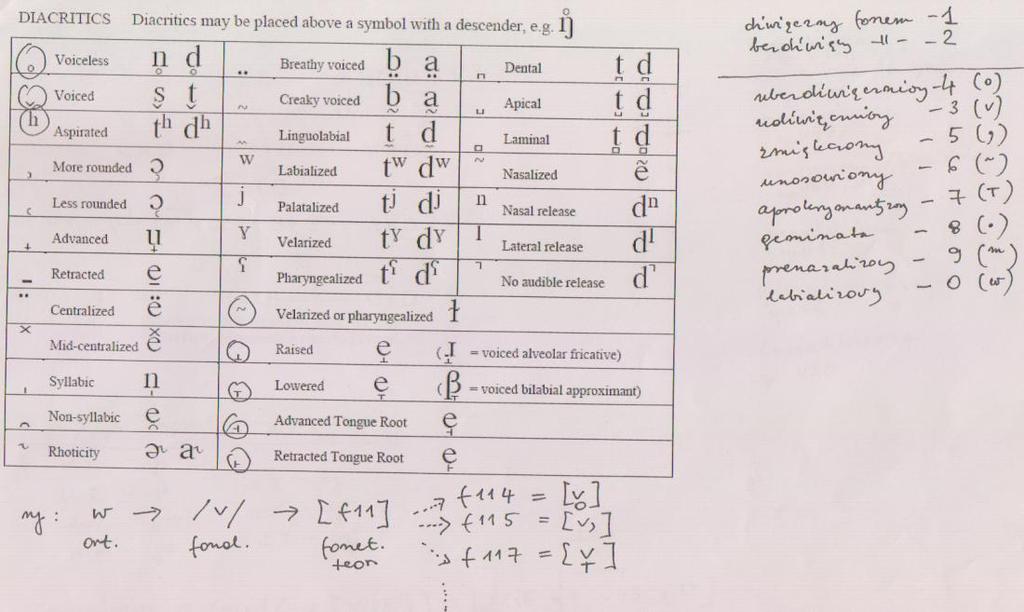 DIACRITICS Diacritics may be placed above a symbol with a descender, e.g. ŋ̊
̥ Voiceless n̥ d̥
̬ Voiced s̬ t̬
h Aspirated tʰ dʰ
̹ More rounded ɔ̹
̜ Less rounded ɔ̜
̟ Advanced u̟
̠ Retracted e̠
̈ Centralized ë
̽ Mid-centralized e̽
̩ Syllabic n̩
̯ Non-syllabic e̯
˞ Rhoticity ɚ a˞
̤ Breathy voiced b̤ a̤
̰ Creaky voiced b̰ a̰
̼ Linguolabial t̼ d̼
ʷ Labialized tʷ dʷ
ʲ Palatalized tʲ dʲ
ˠ Velarized tˠ dˠ
ˤ Pharyngealized tˤ dˤ
̴ Velarized or pharyngealized ɫ
̝ Raised e̝ (ɹ̝ = voiced alveolar fricative)
̞ Lowered e̞ (β̞ = voiced bilabial approximant)
̘ Advanced Tongue Root e̘
̙ Retracted Tongue Root e̙
̪ Dental t̪ d̪
̺ Apical t̺ d̺
̻ Laminal t̻ d̻
̃ Nasalized ẽ
ⁿ Nasal release dⁿ
ˡ Lateral release dˡ
̚ No audible release d̚
dźwięczny fonem - 1
bezdźwięczny -||- - 2
ubezdźwięczniony - 4 (o)
udźwięczniony - 3 (v)
zmiękczony - 5 (,)
unosowiony - 6 (~)
aproksymantyzowany - 7 (T)
geminata - 8 (.)
prenazalizowany - 9 (m)
labializowany - 0 (w)
np: w → /v/ → [f11]
ort. fonol. fonet.
teor
f114 = [v̥]
f115 = [v,]
f117 = [v̞]